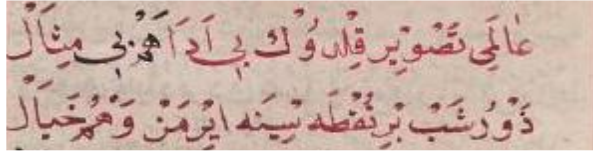 عَالَمِى تَصْوِيِر قِلدُوُكْ بِى اَدَا هَمْ بِى مِثَالْ
دَوْرُ شَبْ بِرْ نُقْطَه سِينَه ايْرمَنْ وَهْمُ خَيَالْ